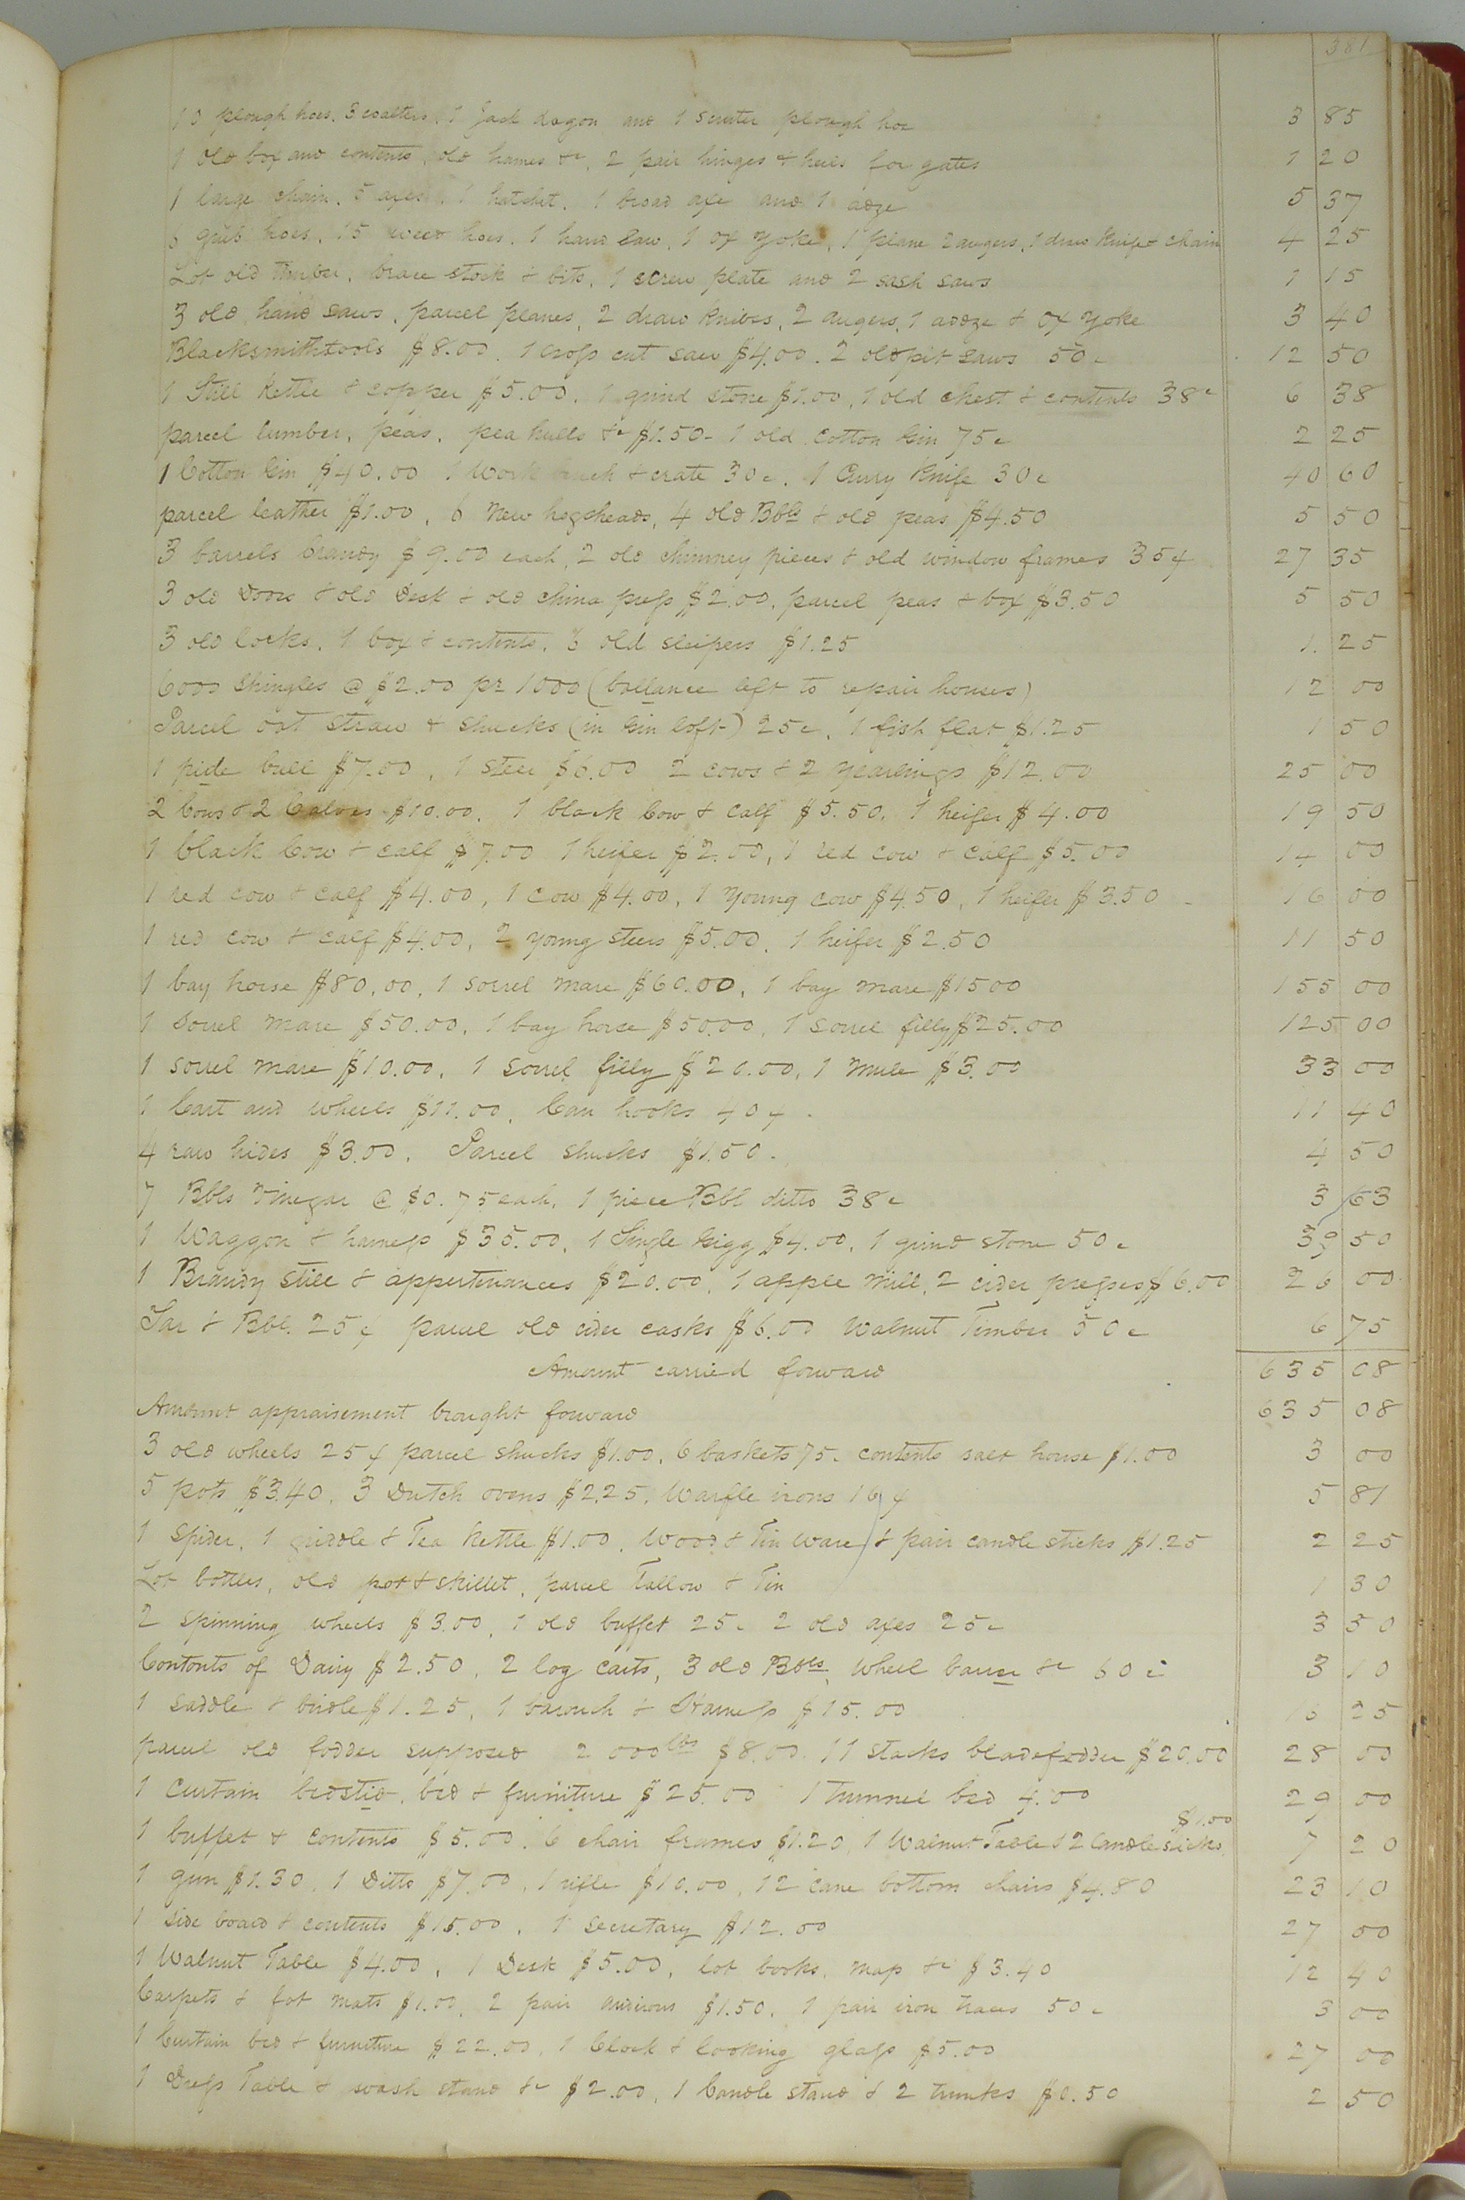 381
10 plough hoes, 3 coalters, 1 Jack dagon and 1 scuter plough hoe 3 85
1 old box and contents, old hames &c, 2 pair hinges & heels for gates 1 20
1 large chain, 5 axes, 1 hatchet, 1 broad axe and 1 adze 5 37
grub hoes, 15 weed hoes, 1 hand saw, 1 ox yoke, 1 plane 2 augers, 1 draw knife & chain 4 25
Lot old timber, brace stock & bits, 1 screw plate and 2 sash saws 1 15
3 old hand saws, parcel planes, 2 draw knives, 2 augers, 1 addze & ox yoke 3 40
Blacksmithtools $8.00, 1 cross cut saw $4.00, 2 old pit saws 50c 12 50
1 Still kettle & copper $5.00, 1 grind stone $1.00, 1 old chest & contents 38c 6 38
parcel lumber, peas, pea hulls &c $1.50 - 1 old Cotton Gin 75c 2 25
1 Cotton Gin $40.00 1 Work bench & crate 30c, 1 Curry Knife 30c 40 60
parcel leather $1.00, 6 New hogsheads, 4 old Bbls & old peas $4.50 5 50
3 barrels brandy $9.00 each, 2 old chimney pieces & old window frames 35c 27 35
3 old Doors & old Desk & old china press $2.00, parcel peas & box $3.50 5 50
3 old locks, 1 box & contents, 3 old sleipers $1.25 1. 25
6000 shingles @ $2.00 pr 1000 (ballance left to repair houses) 12 00
Parcel oat straw & shucks (in Gin loft) 25c, 1 fish flat $1.25 1 50
1 pide bull $7.00, 1 steer $6.00 2 cows & 2 yearlings $12.00 25 00
2 Cows & 2 Calves $10.00, 1 black Cow & Calf $5.50, 1 heifer $4.00 19 50
1 black Cow & calf $7.00 1 heifer $2.00, 1 red cow & calf $5.00 14 00
1 red cow & calf $4.00, 1 cow $4.00, 1 young cow $4.50, 1 heifer $3.50 16 00
1 red cow & calf $4.00, 2 young steers $5.00, 1 heifer $2.50 11 50
1 bay horse $80.00, 1 sorrel mare $60.00, 1 bay mare $1500 155 00
1 Sorrel mare $50.00, 1 bay horse $50.00, 1 Sorrel filly $25.00 125 00
1 sorrel mare $10.00, 1 Sorrel filly $20.00, 1 mule $3.00 33 00
1 Cart and wheels $11.00, Can hooks 40c. 11 40
4 raw hides $3.00, Parcel shucks $1.50. 4 50
7 Bbls Vinegar @ $0.75 each, 1 piece Bbl ditto 38c 3 63
1 Waggon & harness $35.00, 1 Single Gigg $4.00, 1 grind stone 50c 39 50
1 Brandy still & appertenances $20.00, 1 apple mill, 2 cider presses $6.00 26 00
Tar & Bbl. 25c parcel old cider casks $6.00 Walnut Timber 50c 6 75
Amount carried forward 635 08
Amount appraisement brought forward 635 08
3 old wheels 25c parcel shucks $1.00, 6 baskets 75c contents salt house $1.00 3 00
5 pots $3.40, 3 Dutch ovens $2.25, Waffle irons 16c 5 81
1 Spider, 1 griddle & Tea Kettle $1.00, Wood & Tin Ware & pair candle sticks $1.25 2 25
Lot bottles, old pot & skillet, parcel Tallow & Tin 1 30
2 spinning wheels $3.00, 1 old buffet 25c 2 old axes 25c 3 50
Contents of Dairy $2.50, 2 log carts, 3 old Bbls, wheel barrow &c 60c 3 10
1 saddle & bridle $1.25, 1 barouch & Harness $15.00 16 25
parcel old fodder supposed 2000lbs $8.00 11 stacks bladefodder $20.00 28 00
1 Curtain bedstid, bed & furniture $25.00 1 trunnel bed 4.00 29 00
1 buffet & contents $5.00, 6 chair frames $1.20, 1 Walnut Table & 2 Candlesticks $1.00 7 20
1 gun $1.30, 1 Ditto $7.00, 1 rifle $10.00, 12 cane bottom chairs $4.80 23 10
1 side board & contents $15.00, 1 secretary $12.00 27 00
1 Walnut Table $4.00, 1 Desk $5.00, lot books, map &c $3.40 12 40
Carpets & fot mats $1.00, 2 pair andirons $1.50, 1 pair iron traces 50c 3 00
1 Curtain bed & furniture $22.00, 1 Clock & looking glass $5.00 27 00
1 Dress Table & wash stand &c $2.00, 1 Candle stand & 2 trunks $0.50 2 50